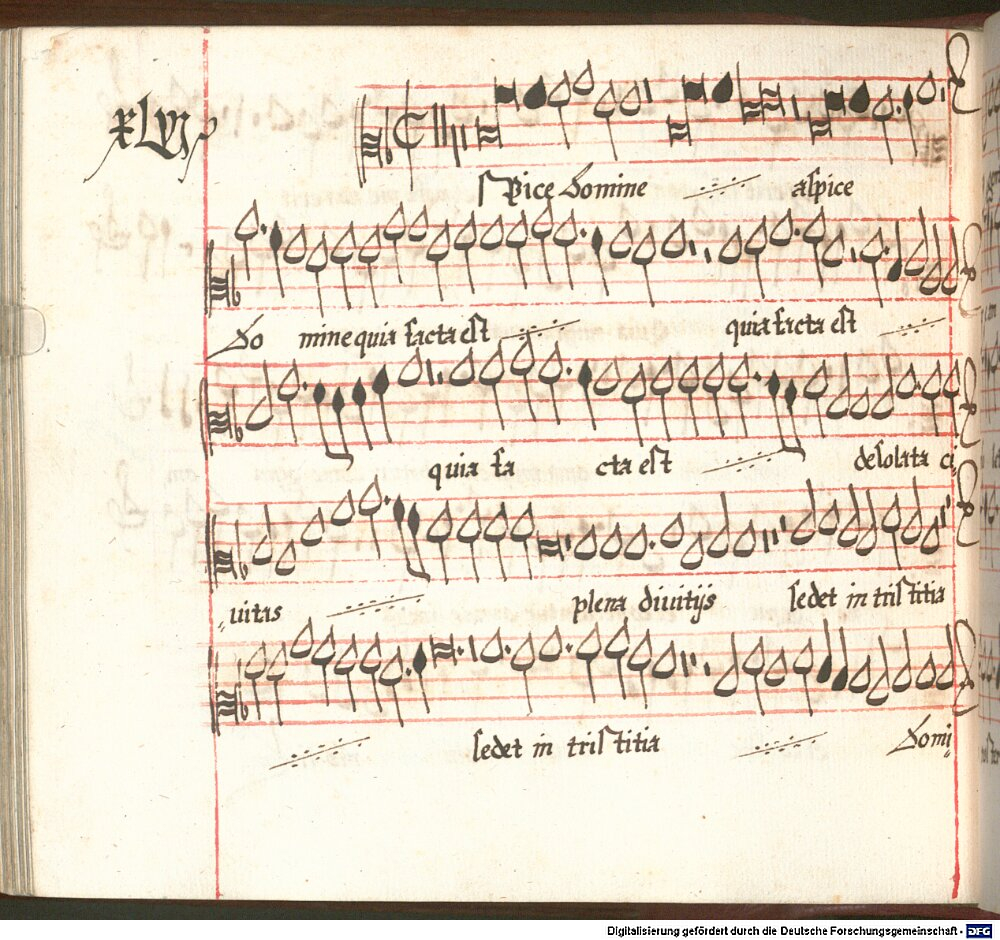 xlvij
spice domine aspice
do mine quia facta est quia facta est
quia fa cta est desolata ci„
„uitas plena diuitijs sedet in tristitia
sedet in tristitia domi„
Digitalisierung gefördert durch die Deutsche Forschungsgemeinschaft - DFG